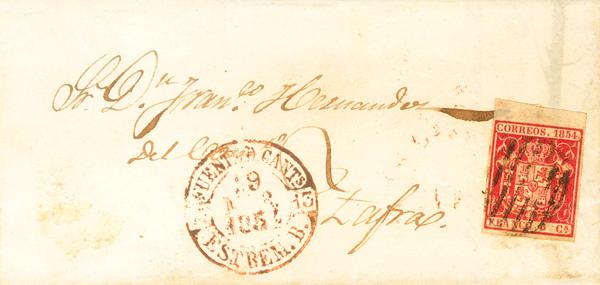 Sr. Dn. Franco. Hernandez
del
Zafra.
FUENTE D CANTS
19
185
ESTREM. B.
CORREOS. 1854.
CS